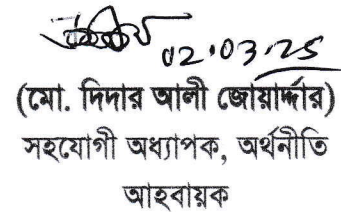 02.03.25
(মো. দিদার আলী জোয়ার্দ্দার)
সহযোগী অধ্যাপক, অর্থনীতি
আহবায়ক